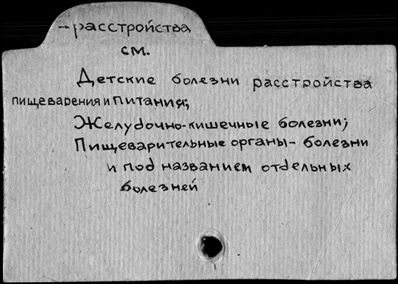 -расстройства
см.
Детские болезни расстройства
пищеварения и питания;
Желудочно-кишечные болезни;
Пищеварительные органы- болезни
и под названием отдельных
болезней